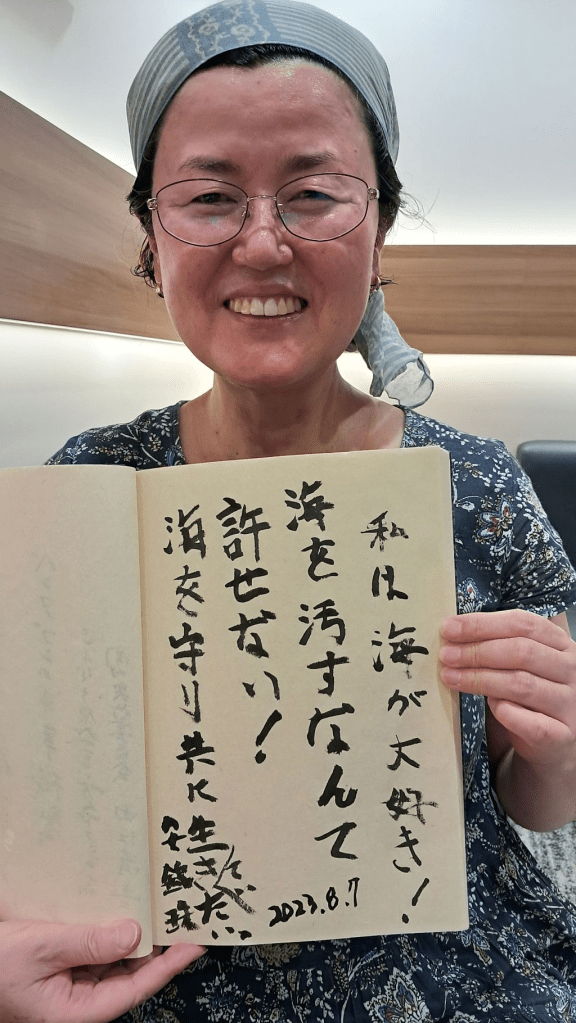 私は海が大好き!
海を汚すなんて
許せない!
海を守り共に
生きていきたい。
2023.8.7